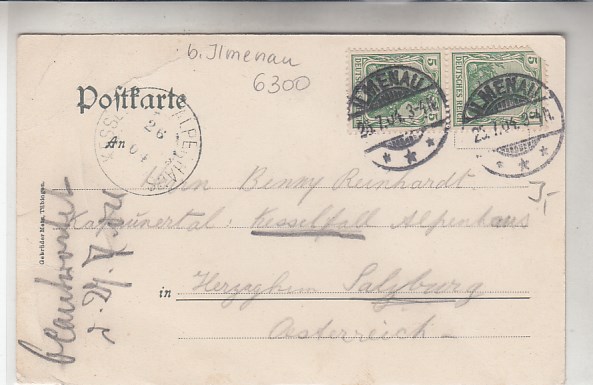 b. Ilmenau
6300
Postkarte
5 DEUTSCHES REICH 5
5 DEUTSCHES REICH 5
ILMENAU
23.7.04. 3-4 N.
ILMENAU
23.7.04. 3-4 N.
KESSELF ALPENHAUS
26
04
An
Herrn Benny Reinhardt
Kaprunertal: Kesselfall Alpenhaus
in Herzogthum Salzburg
Österreich –
3,-
Gebrüder Metz, Tübingen.
beantwortet
d. 27. 7. 04